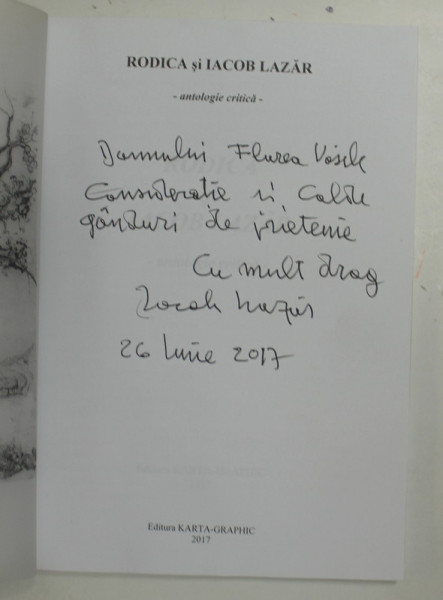 RODICA și IACOB LAZĂR
- antologie critică -
Domnului Florea Vasile
Considerație și Calde
gânduri de prietenie
Cu mult drag
Iacob Lazăr
26 Iunie 2017
Editura KARTA-GRAPHIC
2017